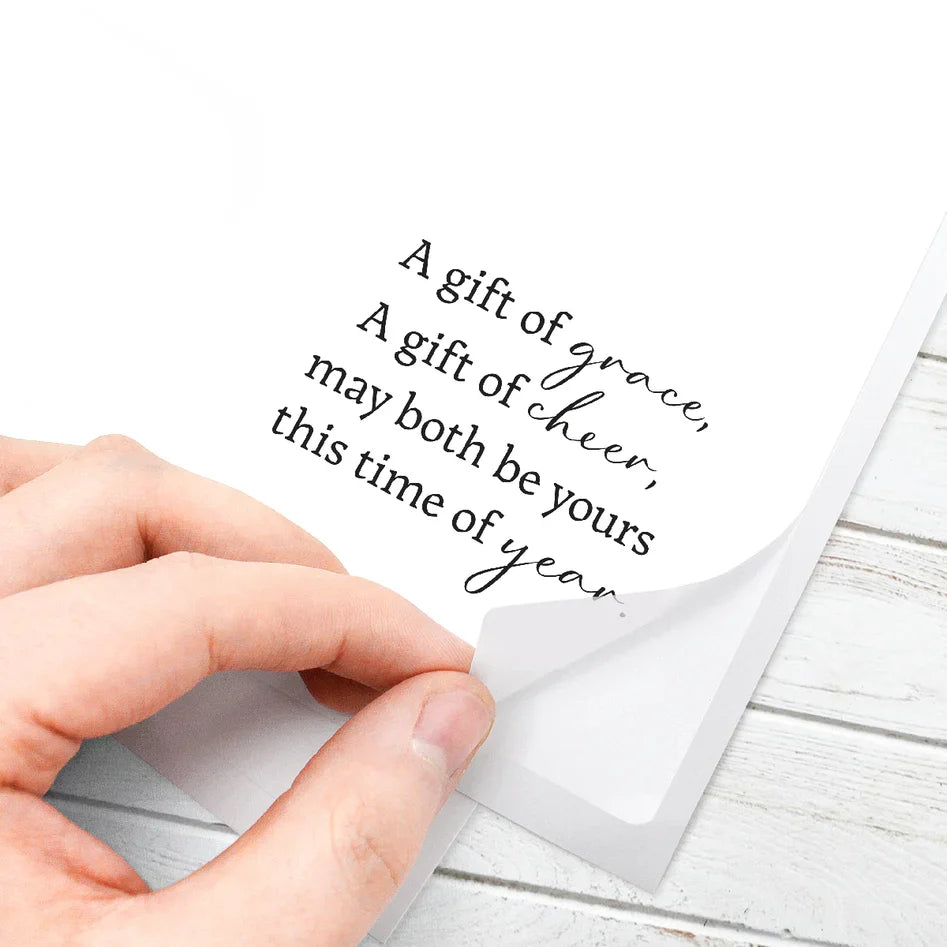 A gift of grace,
A gift of cheer,
may both be yours
this time of year.